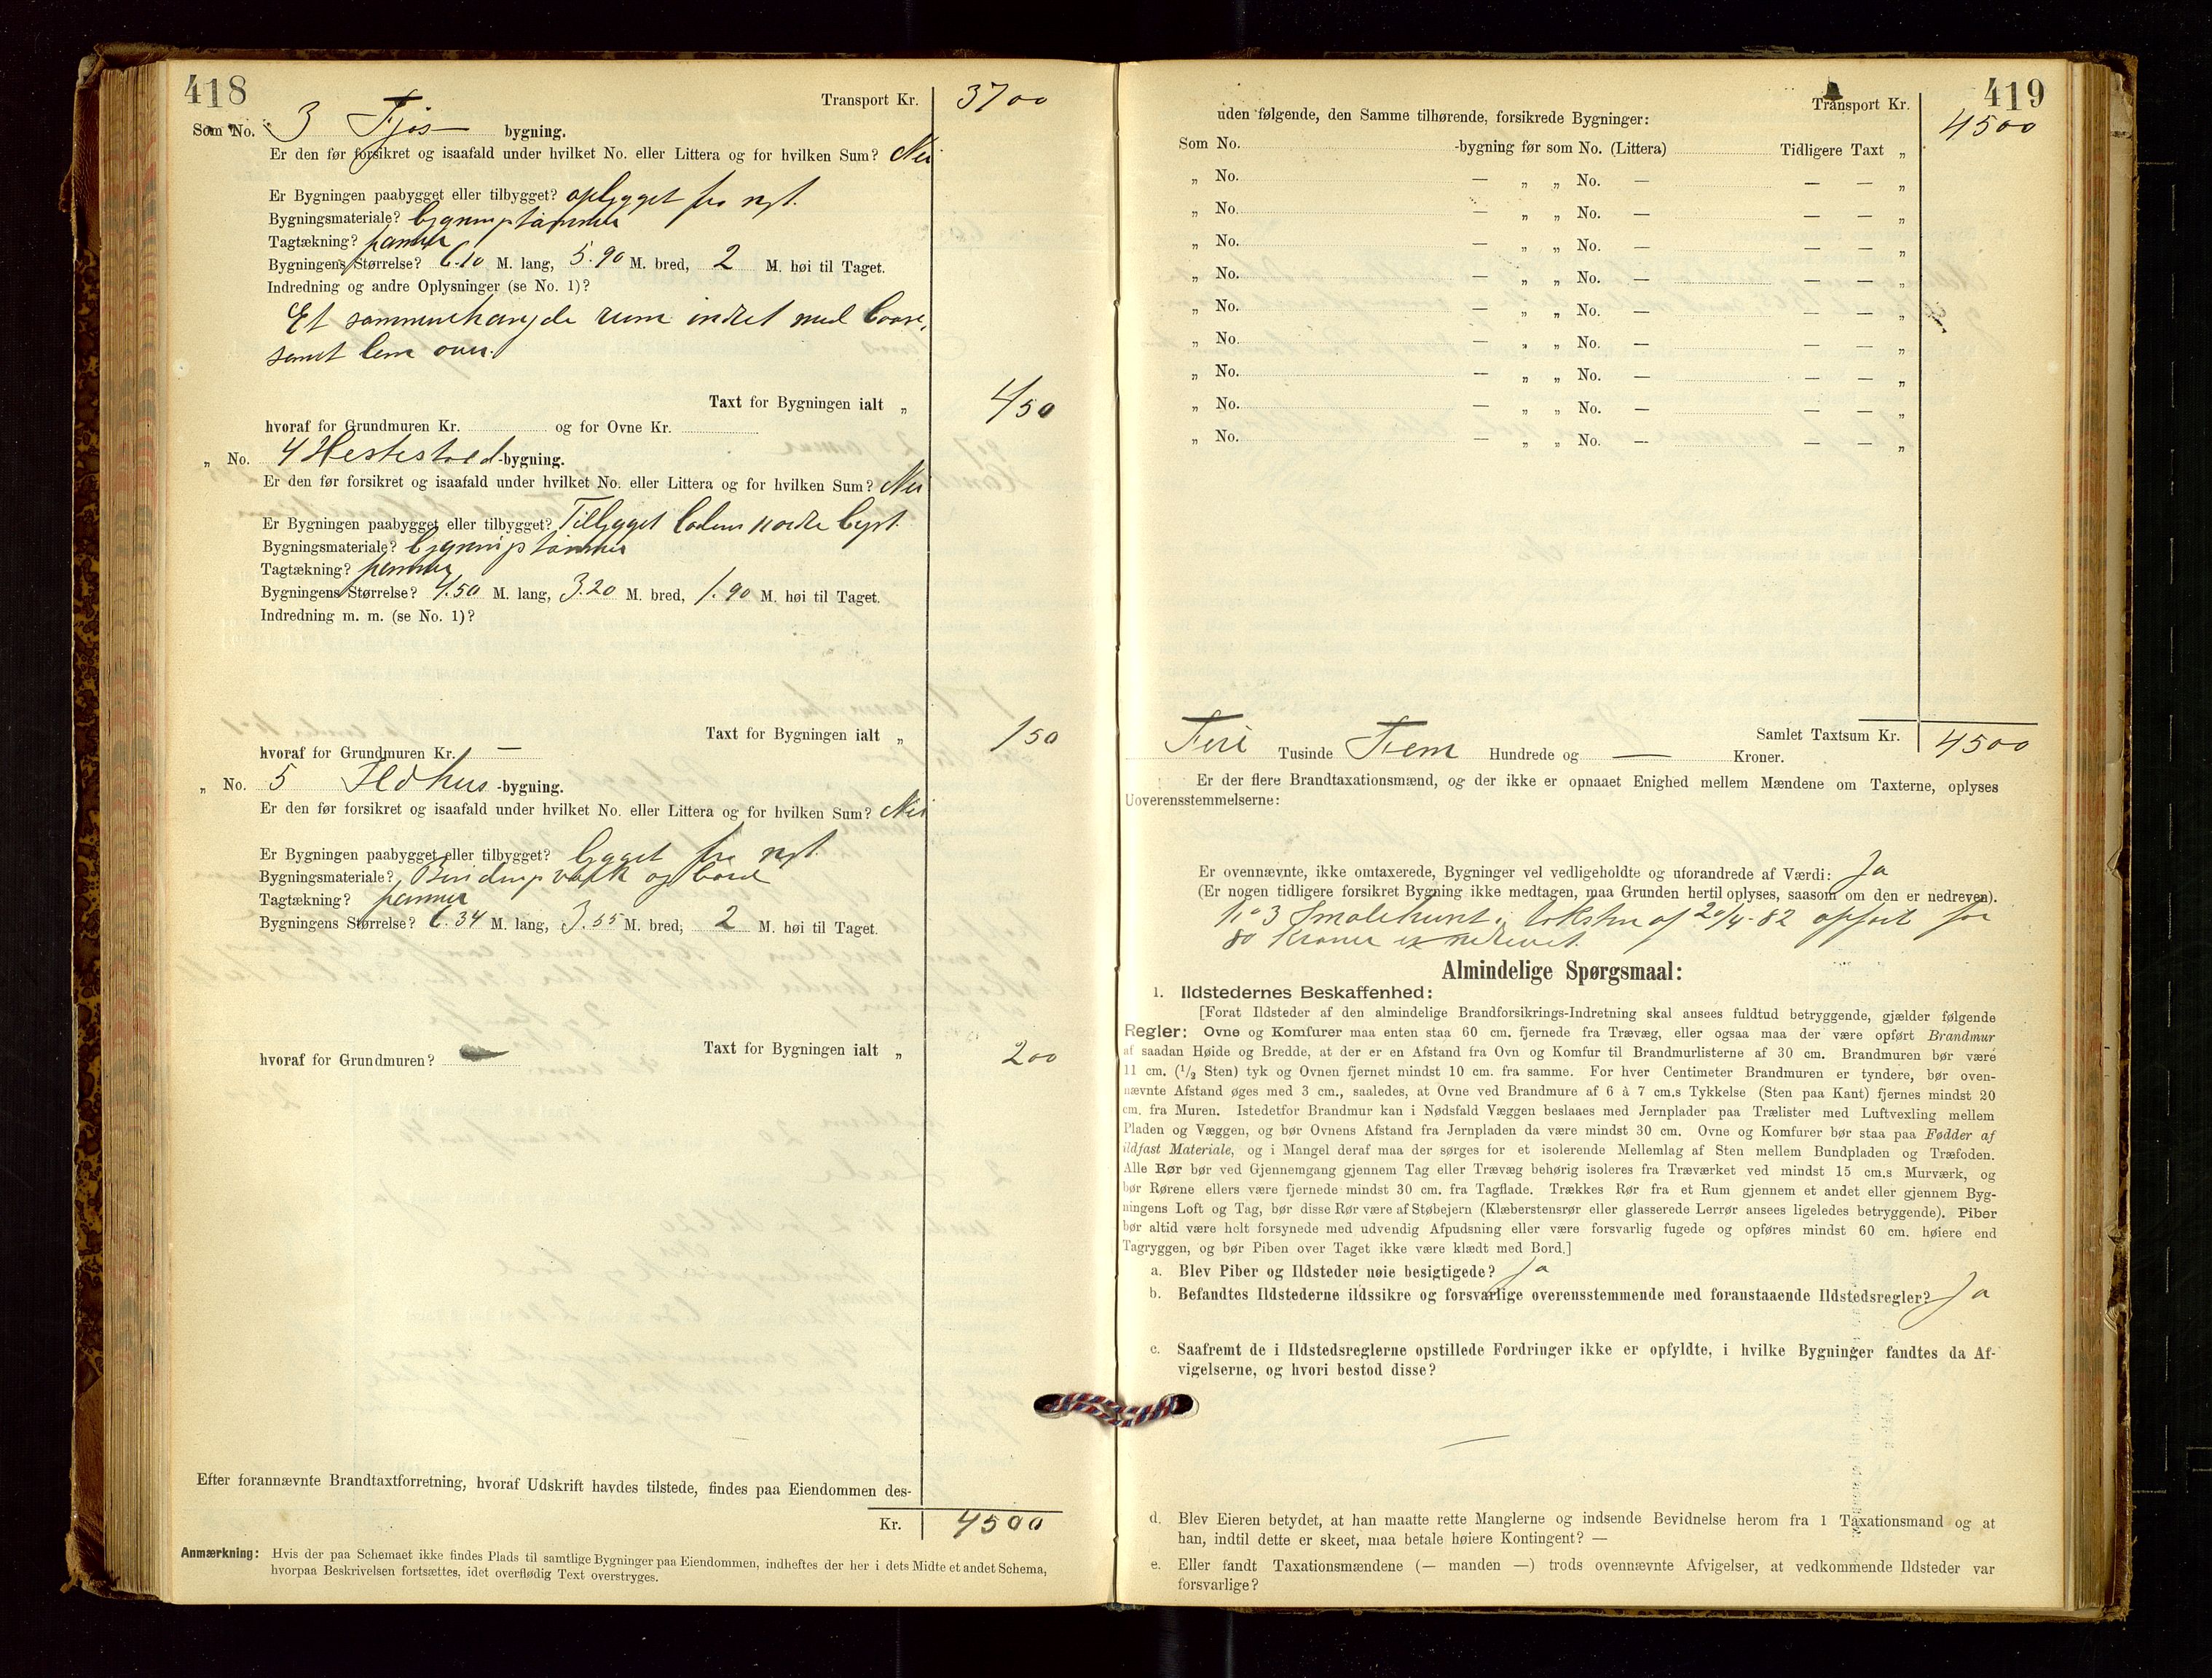 418
Transport Kr. 3700
Som No. 3 Fjøs bygning.
Er den før forsikret og isaafald under hvilket No. eller Littera og for hvilken Sum? Nei
Er Bygningen paabygget eller tilbygget? opbygget fra nyt.
Bygningsmateriale? bygningstømmer
Tagtækning? panner
Bygningens Størrelse? 6.10 M. lang, 5.90 M. bred, 2 M. høi til Taget.
Indredning og andre Oplysninger (se No. 1)?
Et sammenhængde rum indret med baase,
samt lem over.
Taxt for Bygningen ialt „ 450
hvoraf for Grundmuren Kr. og for Ovne Kr.
„ No. 4 Hestestald-bygning.
Er den før forsikret og isaafald under hvilket No. eller Littera og for hvilken Sum? Nei
Er Bygningen paabygget eller tilbygget? Tilbygget ladens nordre
Bygningsmateriale? bygningstømmer
Tagtækning? panner
Bygningens Størrelse? 4.50 M. lang, 3.20 M. bred, 1.90 M. høi til Taget.
Indredning m. m. (se No. 1)?
Taxt for Bygningen ialt „ 150
hvoraf for Grundmuren Kr. —
„ No. 5 Ildhus -bygning.
Er den før forsikret og isaafald under hvilket No. eller Littera og for hvilken Sum? Nei
Er Bygningen paabygget eller tilbygget? bygget fra nyt.
Bygningsmateriale? Bindingsværk og bord
Tagtækning? panner
Bygningens Størrelse? 6.34 M. lang, 3.55 M. bred, 2 M. høi til Taget.
Taxt for Bygningen ialt „ 200
hvoraf for Grundmuren?
Efter forannævnte Brandtaxtforretning, hvoraf Udskrift havdes tilstede, findes paa Eiendommen des-
Kr. 4500
Anmærkning: Hvis der paa Schemaet ikke findes Plads til samtlige Bygninger paa Eiendommen, indheftes der her i dets Midte et andet Schema,
hvorpaa Beskrivelsen fortsættes, idet overflødig Text overstryges.
419
Transport Kr. 4500
uden følgende, den Samme tilhørende, forsikrede Bygninger:
Som No. -bygning før som No. (Littera) Tidligere Taxt „
„ No. — „ „ No. — — — „
„ No. — „ „ No. — — — „
„ No. — „ „ No. — — — „
„ No. — „ „ No. — — — „
„ No. — „ „ No. — — — „
„ No. — „ „ No. — — — „
„ No. — „ „ No. — — — „
„ No. — „ „ No. — — — „
„ No. — „ „ No. — — — „
Samlet Taxtsum Kr. 4500
Fire Tusinde Fem Hundrede og — Kroner.
Er der flere Brandtaxationsmænd, og der ikke er opnaaet Enighed mellem Mændene om Taxterne, oplyses
Uoverensstemmelserne:
Er ovennævnte, ikke omtaxerede, Bygninger vel vedligeholdte og uforandrede af Værdi: Ja
(Er nogen tidligere forsikret Bygning ikke medtagen, maa Grunden hertil oplyses, saasom om den er nedreven).
No 3 Smalehuset i af 20/4-82 opført for
80 Kroner er nedrevet.
Almindelige Spørgsmaal:
1. Ildstedernes Beskaffenhed:
[Forat Ildsteder af den almindelige Brandforsikrings-Indretning skal ansees fuldtud betryggende, gjælder følgende
Regler: Ovne og Komfurer maa enten staa 60 cm. fjernede fra Trævæg, eller ogsaa maa der være opført Brandmur
af saadan Høide og Bredde, at der er en Afstand fra Ovn og Komfur til Brandmurlisterne af 30 cm. Brandmuren bør være
11 cm. (1/2 Sten) tyk og Ovnen fjernet mindst 10 cm. fra samme. For hver Centimeter Brandmuren er tyndere, bør oven-
nævnte Afstand øges med 3 cm., saaledes, at Ovne ved Brandmure af 6 à 7 cm.s Tykkelse (Sten paa Kant) fjernes mindst 20
cm. fra Muren. Istedetfor Brandmur kan i Nødsfald Væggen beslaaes med Jernplader paa Trælister med Luftvexling mellem
Pladen og Væggen, og bør Ovnens Afstand fra Jernpladen da være mindst 30 cm. Ovne og Komfurer bør staa paa Fødder af
ildfast Materiale, og i Mangel deraf maa der sørges for et isolerende Mellemlag af Sten mellem Bundpladen og Træfoden.
Alle Rør bør ved Gjennemgang gjennem Tag eller Trævæg behørig isoleres fra Træværket ved mindst 15 cm.s Murværk, og
bør Rørene ellers være fjernede mindst 30 cm. fra Tagflade. Trækkes Rør fra et Rum gjennem et andet eller gjennem Byg-
ningens Loft og Tag, bør disse Rør være af Støbejern (Klæberstensrør eller glasserede Lerrør ansees ligeledes betryggende). Piber
bør altid være helt forsynede med udvendig Afpudsning eller være forsvarlig fugede og opføres mindst 60 cm. høiere end
Tagryggen, og bør Piben over Taget ikke være klædt med Bord.]
a. Blev Piber og Ildsteder nøie besigtigede? Ja
b. Befandtes Ildstederne ildssikre og forsvarlige overensstemmende med foranstaaende Ildstedsregler? Ja
c. Saafremt de i Ildstedsreglerne opstillede Fordringer ikke er opfyldte, i hvilke Bygninger fandtes da Af-
vigelserne, og hvori bestod disse?
—
d. Blev Eieren betydet, at han maatte rette Manglerne og indsende Bevidnelse herom fra 1 Taxationsmand og at
han, indtil dette er skeet, maa betale høiere Kontingent? —
e. Eller fandt Taxationsmændene (— manden —) trods ovennævnte Afvigelser, at vedkommende Ildsteder var
forsvarlige?